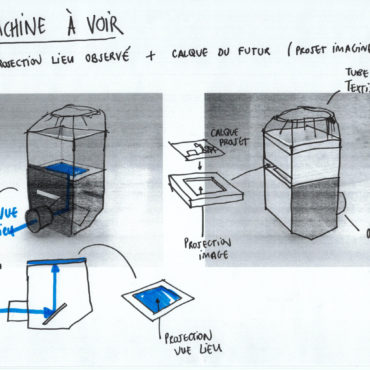 MACHINE À VOIR
PROJECTION LIEU OBSERVÉ + CALQUE DU FUTUR (PROJET IMAGINÉ
TUBE
CALQUE
PROJET
VUE
LIEU
PROJECTION
IMAGE
PROJECTION
VUE LIEU